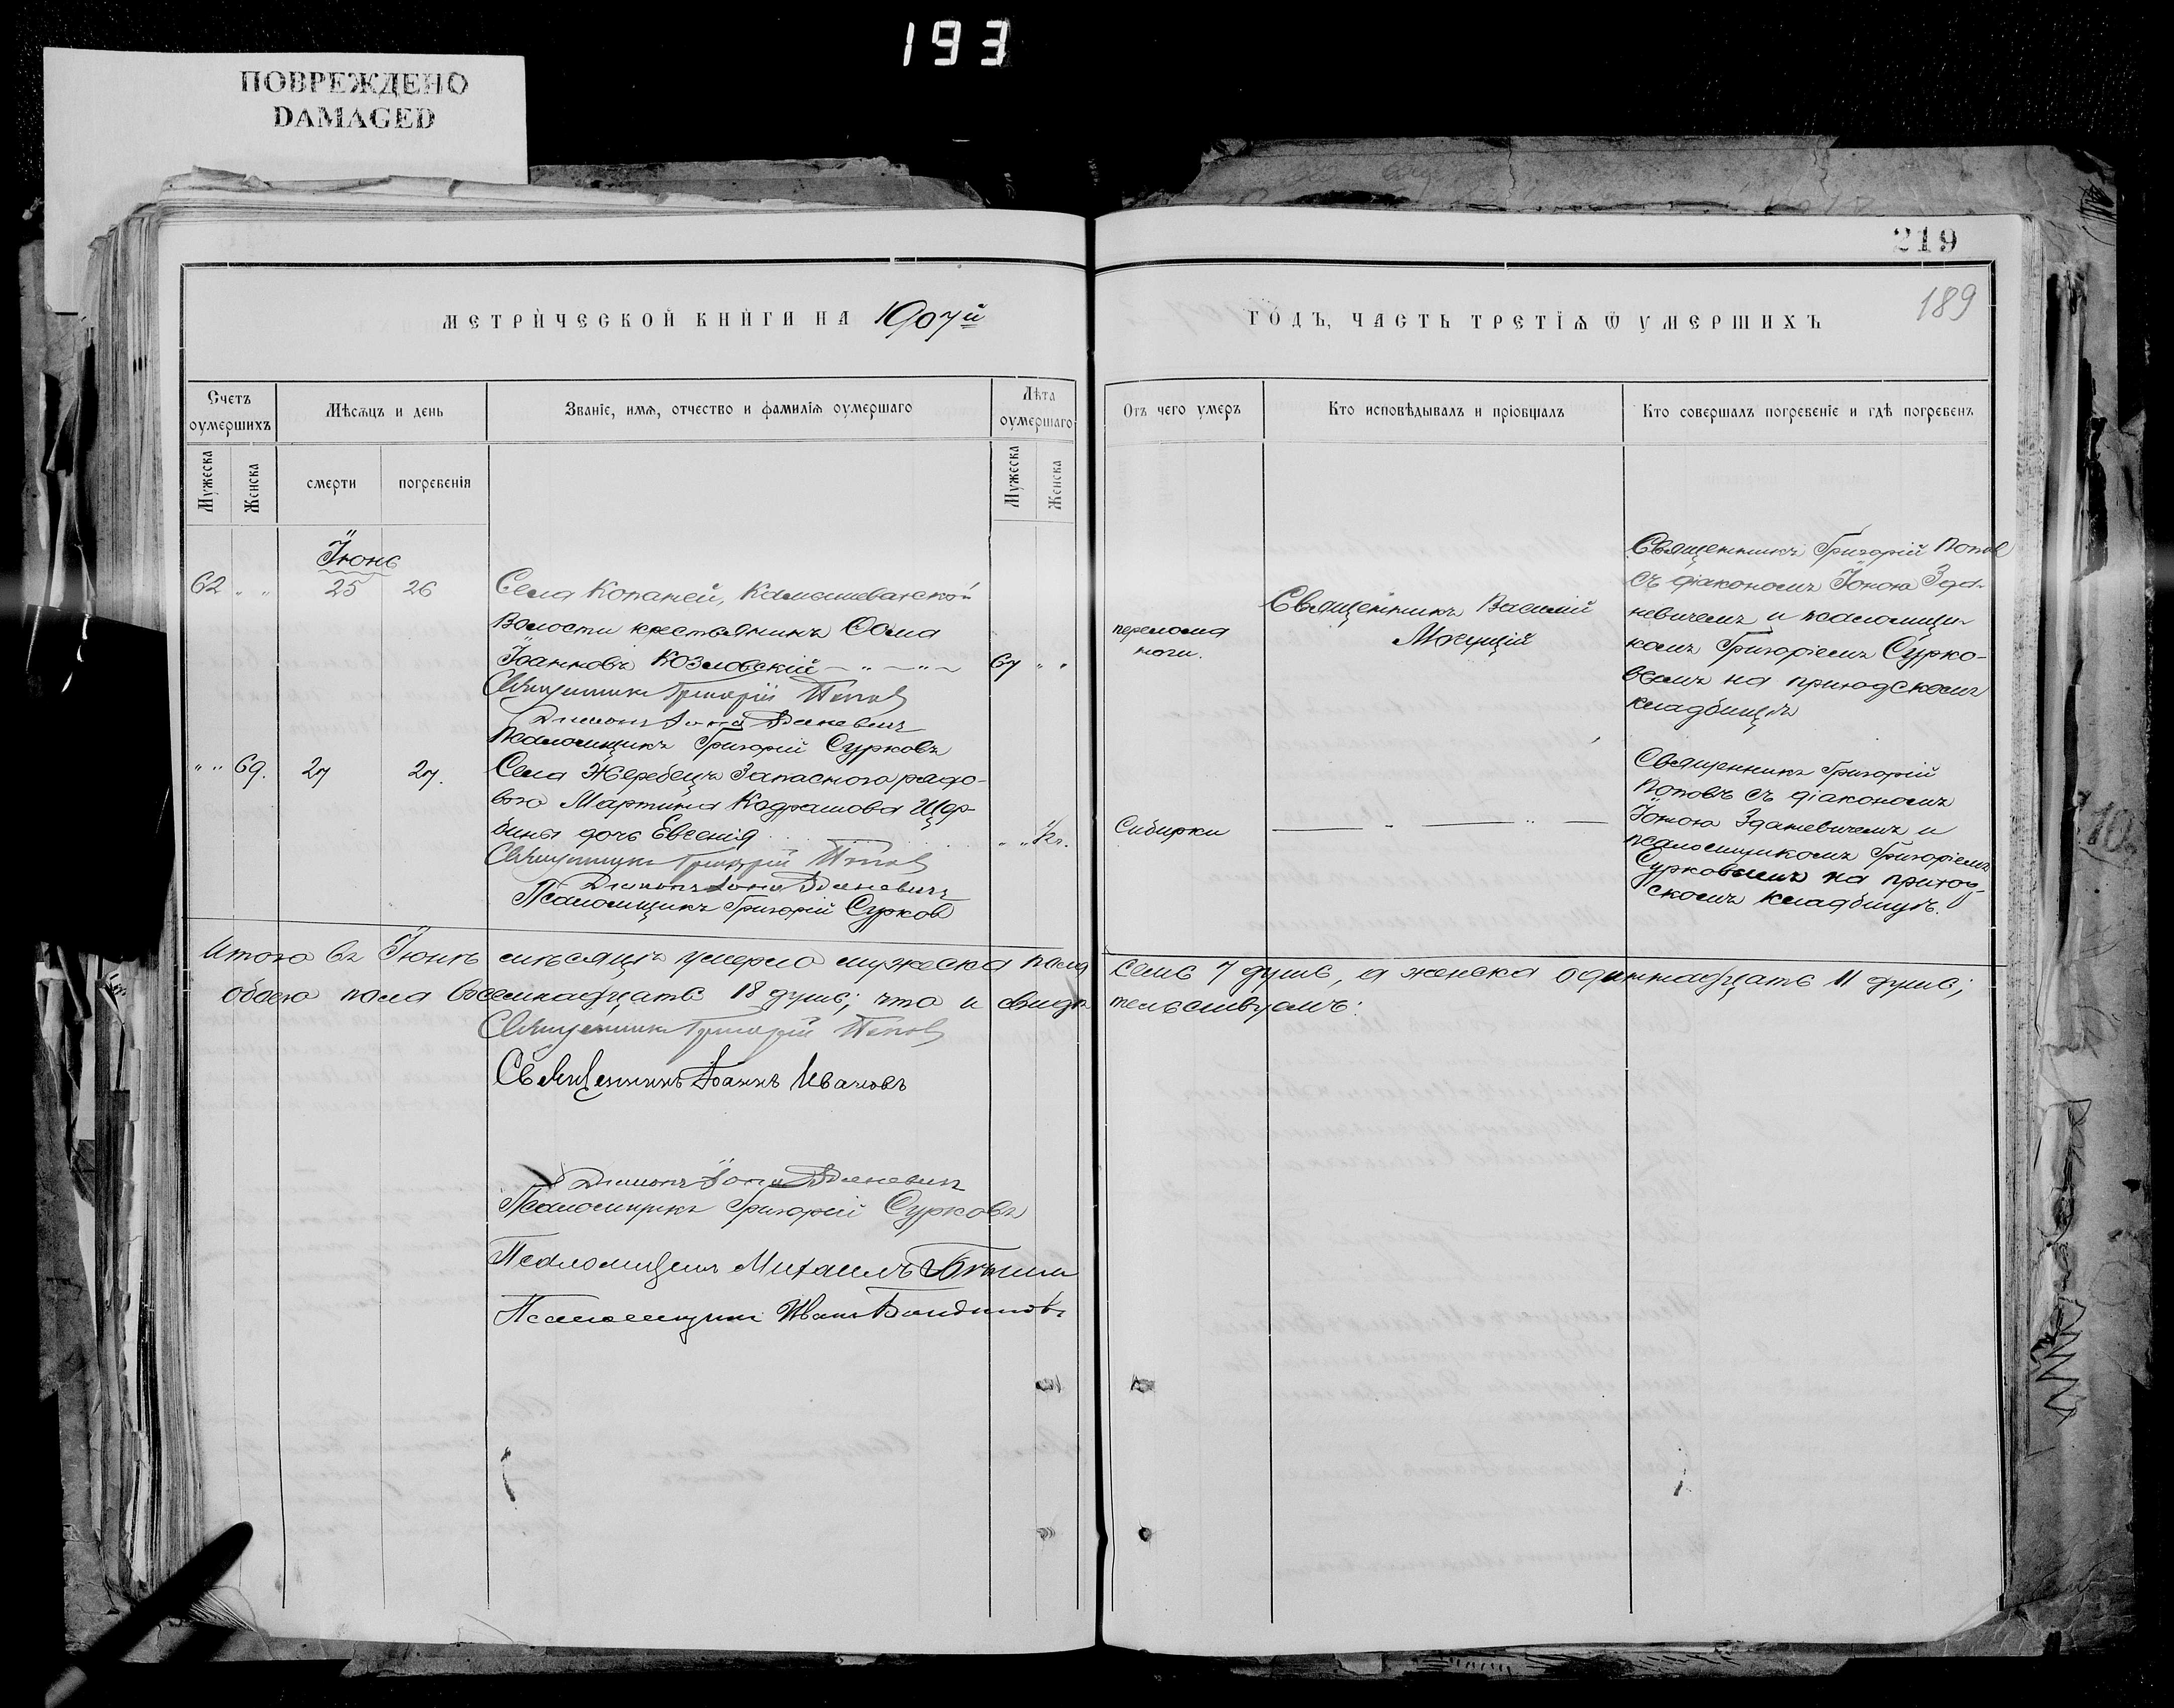 193
ПОВРЕЖДЕНО
DAMAGED
219
189
МЕТРИЧЕСКОЙ КНИГИ НА 1907й
ГОДЪ, ЧАСТЬ ТРЕТІѦ Ѿ УМЕРШИХЪ
Счетъ оумершихъ
Мѣсѧцъ и день
Званіе, имѧ, отчество и фамиліѧ оумершаго
Лѣта оумершаго
Отъ чего умеръ
Кто исповѣдывалъ и пріобщалъ
Кто совершалъ погребеніе и гдѣ погребенъ
Мужеска
Женска
смерти
погребенія
Мужеска
Женска
Іюнь
62 " " 25 26
Села Копаней, Камышеватской
волости крестьянинъ Ѳома
Іоанновъ Козловскій — " — " — 67 " "
Священникъ Григорій Попов
Діаконъ Іона Зданевичъ
Псаломщикъ Григорій Сурковъ
перелома
ноги.
Священникъ Василій
Священникъ Григорій Попов
съ діакономъ Іоною Зда-
невичемъ и псаломщи-
комъ Григоріемъ Сурко-
вымъ на приходскомъ
кладбищѣ
" " 69. 27 27.
Села Жеребецъ Запасного рядо-
вого Мартина Щер-
бины дочь Евгенія
Священникъ Григорій Попов
Діаконъ Іона Зданевичъ
Псаломщикъ Григорій Сурков
Сибирки
Священникъ Григорій
Поповъ съ діакономъ
Іоною Зданевичемъ и
псаломщикомъ Григоріемъ
Сурковымъ на приход-
скомъ кладбищѣ.
Итого въ Іюнѣ мѣсяцѣ умерло мужеска пола семь 7 душъ, а женска одиннадцать 11 душъ;
обоего пола восемнадцать 18 душъ; что и свидѣтельствуемъ:
Священникъ Григорій Попов
Священникъ Іоаннъ Ивановъ
Діаконъ Іона Зданевичъ
Псаломщикъ Григорій Сурковъ
Псаломщикъ Михаилъ
Псаломщикъ Иванъ